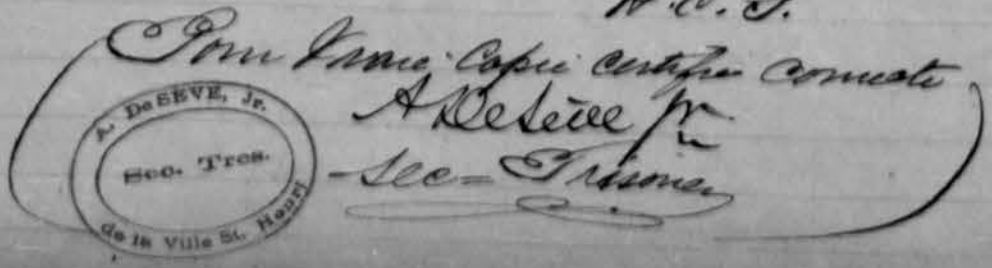 N.C.S.
Pour Vraie Copie certifiée correcte
A DeSève Jr
Sec = Trésorier
A. DeSÈVE, Jr.
Sec. Tres.
de la Ville St. Henri